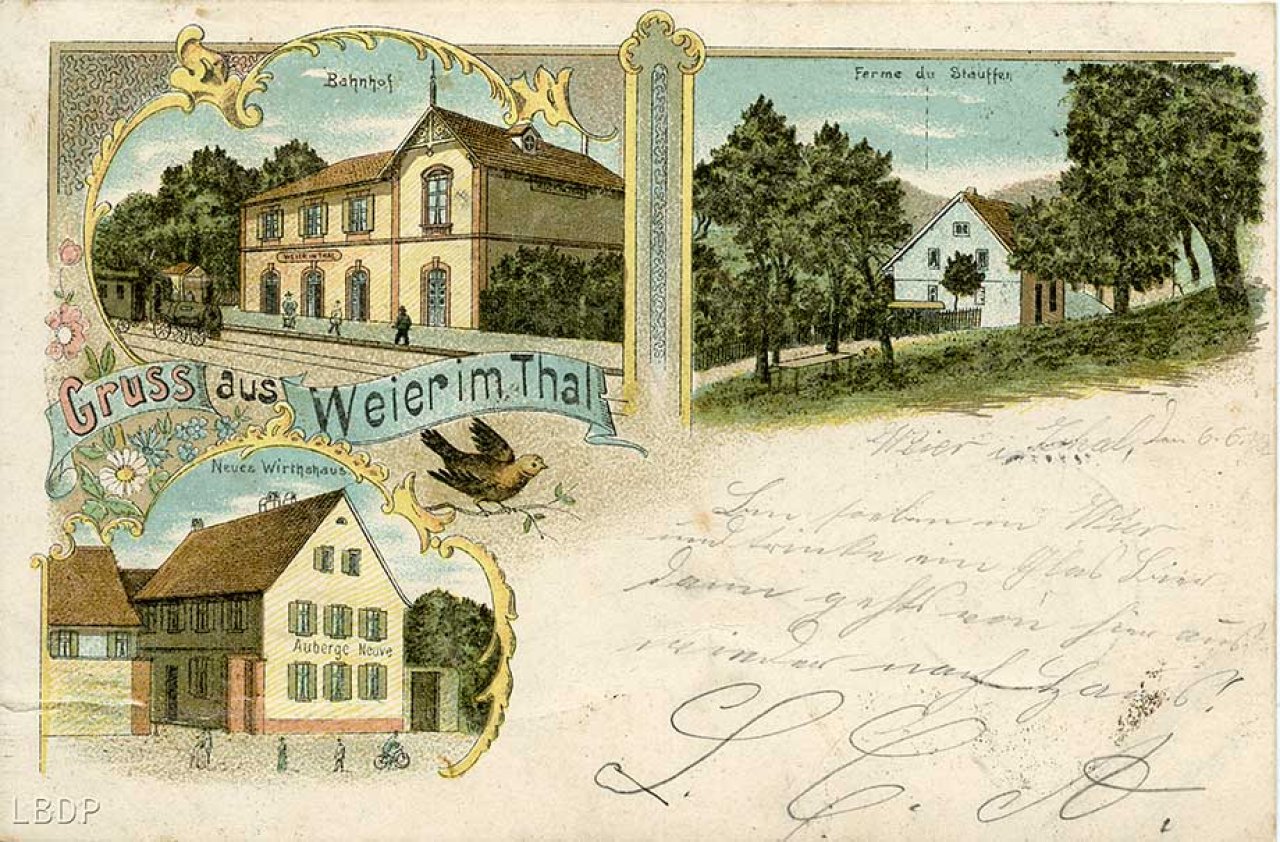 Bahnhof
Ferme du Stauffen
WEIER IM THAL
Gruss aus Weier im Thal
Neues Wirthshaus
Auberge Neuve
Weier i. Thal, den 6.6.
Bin soeben in Weier
und trinke ein Glas Bier
dann gehts von hier aus
wieder nach Haus!
LBDP